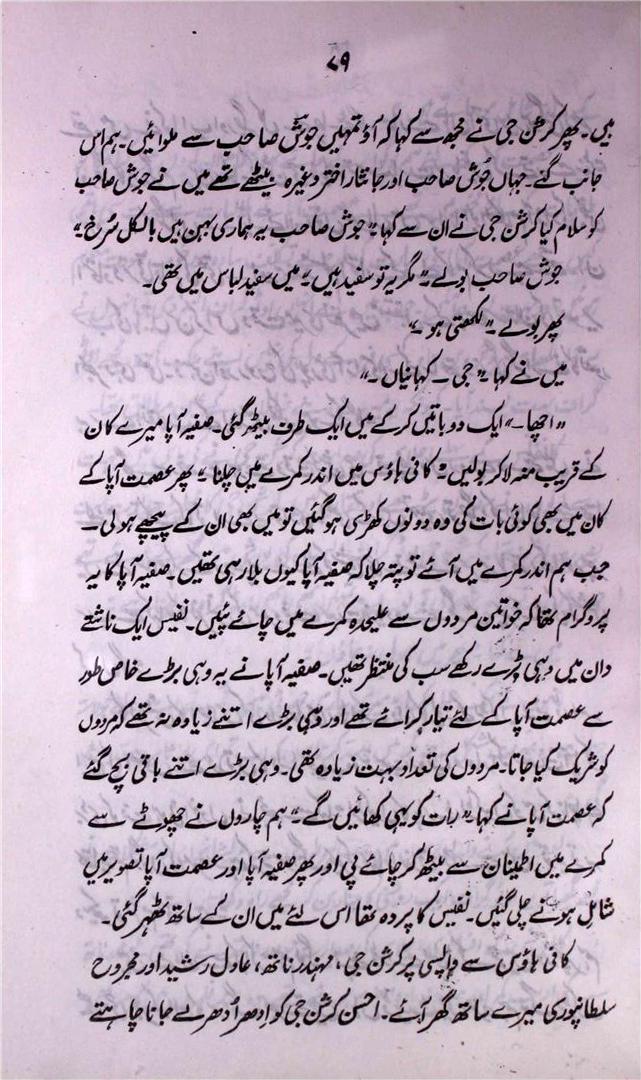 ۷۹
ہیں۔ پھر کرشن جی نے مجھ سے کہا کہ آؤ تمہیں جوش صاحب سے ملوائیں۔ ہم اس
جانب گئے۔ جہاں جوش صاحب اور جانثار اختر وغیرہ بیٹھے تھے میں نے جوش صاحب
کو سلام کیا کرشن جی نے ان سے کہا۔ "جوش صاحب یہ ہماری بہن ہیں بالکل سُرخ۔"
جوش صاحب بولے۔ "مگر یہ تو سفید ہیں۔" میں سفید لباس میں تھی۔
پھر بولے۔ "لکھتی ہو۔"
میں نے کہا۔ "جی۔ کہانیاں۔"
"اچھا۔" ایک دو باتیں کر کے میں ایک طرف بیٹھ گئی۔ صفیہ آپا میرے کان
کے قریب منہ لا کر بولیں۔ "کافی ہاؤس میں اندر کمرے میں چلنا۔" پھر عصمت آپا کے
کان میں بھی کوئی بات کی وہ دونوں کھڑی ہو گئیں تو میں بھی ان کے پیچھے ہو لی۔
جب ہم اندر کمرے میں آئے تو پتہ چلا کہ صفیہ آپا کیوں بلا رہی تھیں۔ صفیہ آپا کا یہ
پروگرام تھا کہ خواتین مردوں سے علیحدہ کمرے میں چائے پئیں۔ نفیس ایک ناشتے
دان میں دہی بڑے رکھے سب کی منتظر تھیں۔ صفیہ آپا نے یہ دہی بڑے خاص طور
سے عصمت آپا کے لئے تیار کرائے تھے اور دہی بڑے اتنے زیادہ نہ تھے کہ مردوں
کو شریک کیا جاتا۔ مردوں کی تعداد بہت زیادہ تھی۔ دہی بڑے اتنے باقی بچ گئے
کہ عصمت آپا نے کہا۔ "رات کو یہی کھائیں گے۔" ہم چاروں نے چھوٹے سے
کمرے میں اطمینان سے بیٹھ کر چائے پی اور پھر صفیہ آپا اور عصمت آپا تصویر میں
شامل ہونے چلی گئیں۔ نفیس کا پردہ تھا اس لئے میں ان کے ساتھ ٹھہر گئی۔
کافی ہاؤس سے واپسی پر کرشن جی، مہندر ناتھ، عادل رشید اور مجروح
سلطانپوری میرے ساتھ گھر آئے۔ احسن کرشن جی کو اِدھر اُدھر لے جانا چاہتے